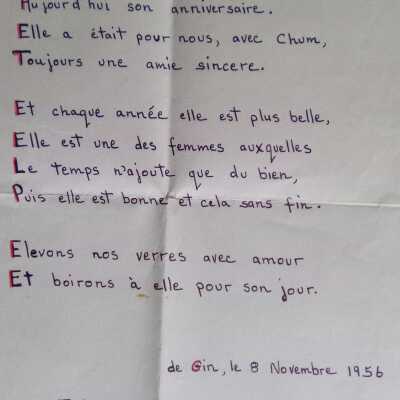 Aujourd'hui son anniversaire.
Elle a était pour nous, avec Chum,
Toujours une amie sincere.
Et chaque année elle est plus belle,
Elle est une des femmes auxquelles
Le temps n'ajoute que du bien,
Puis elle est bonne et cela sans fin.
Elevons nos verres avec amour
Et boirons à elle pour son jour.
de Gin, le 8 Novembre 1956